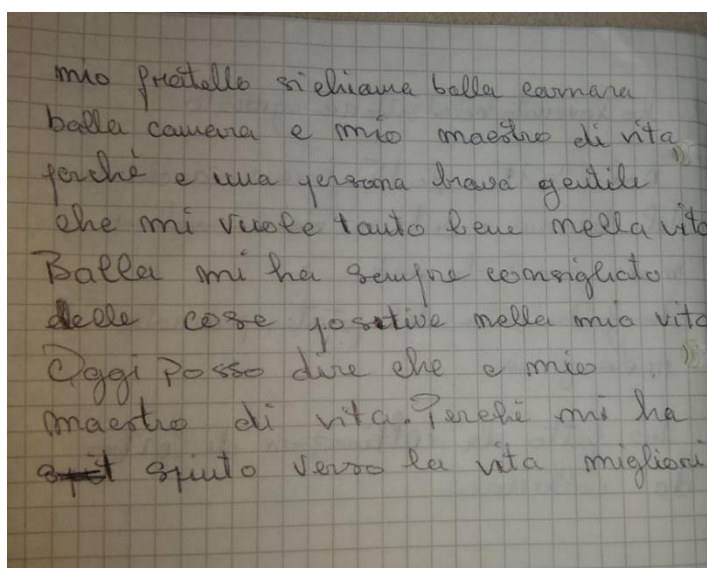 mio fratello si chiama balla camara
balla camara e mio maestro di vita
perché e una persona brava gentile
che mi vuole tanto bene nella vita
Balla mi ha sempre consigliato
delle cose positive nella mia vita
Oggi posso dire che e mio
maestro di vita. Perché mi ha
spinto verso la vita migliori